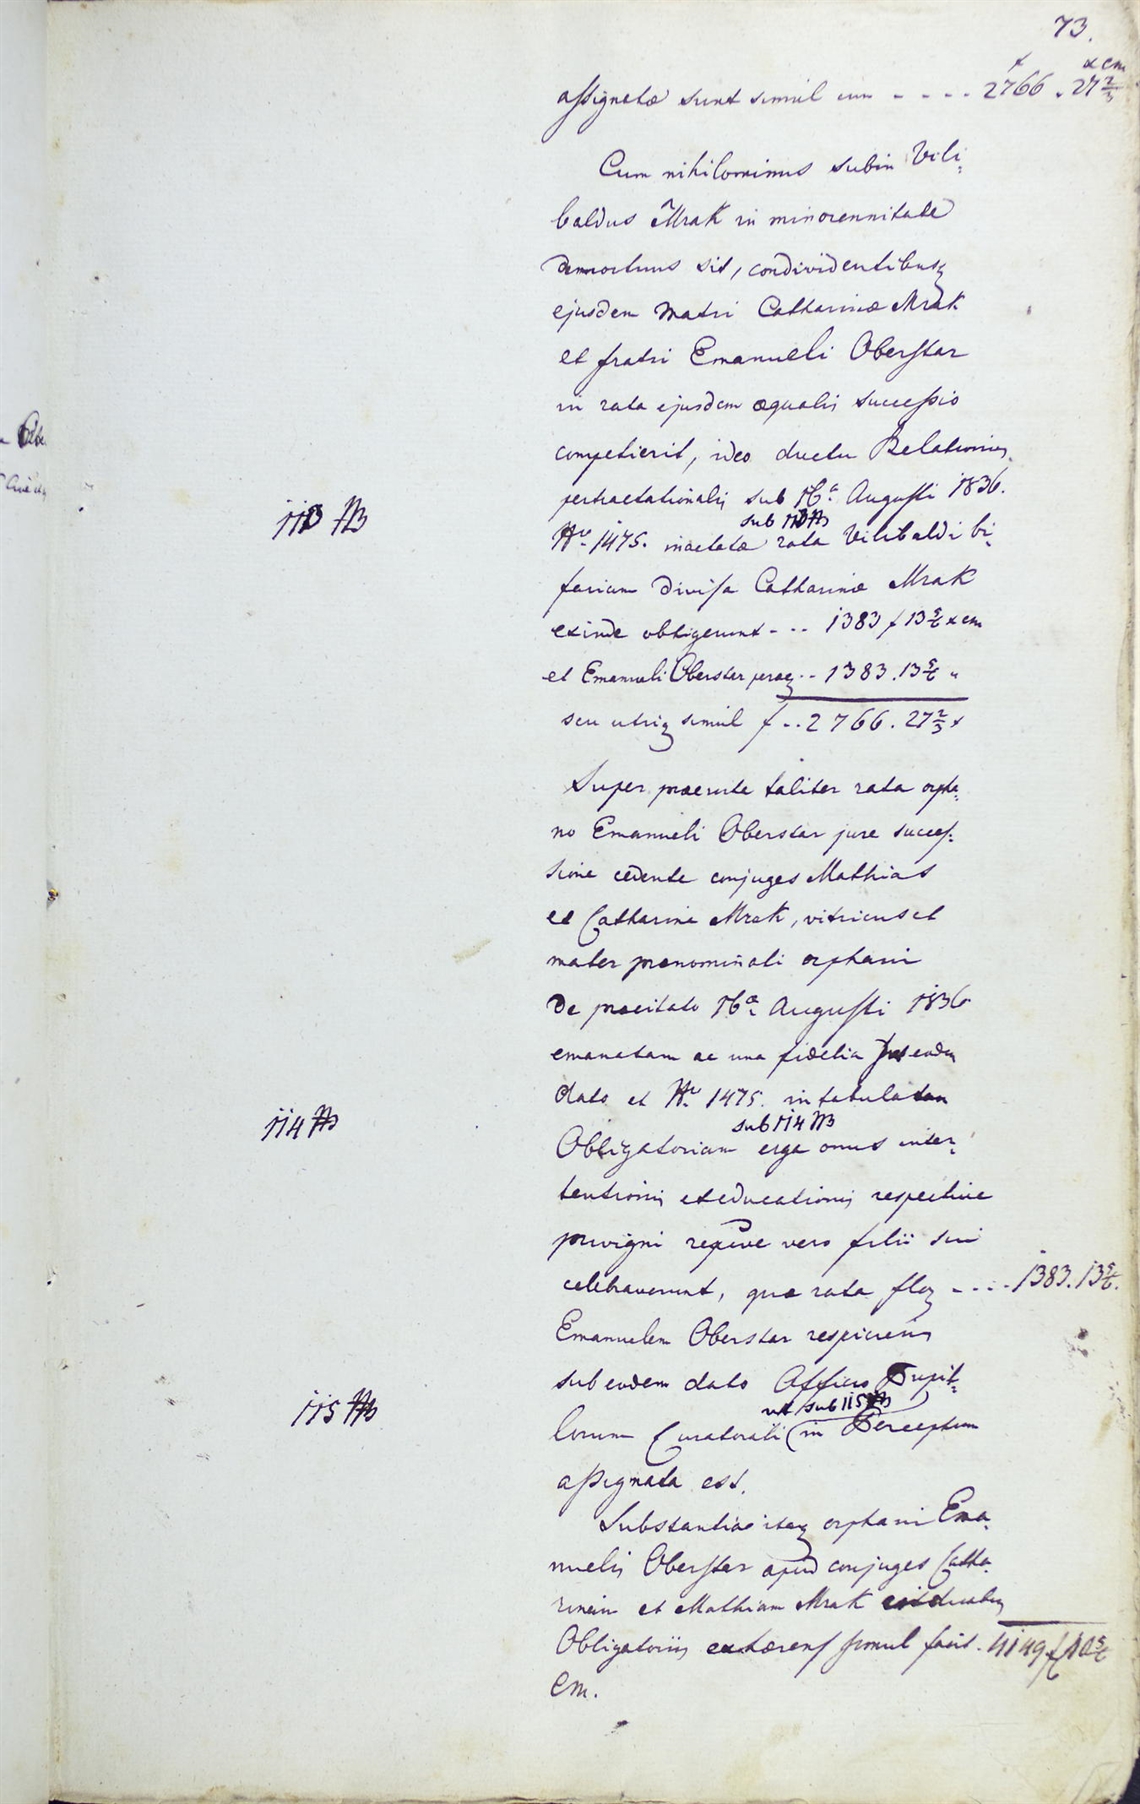 73.
f x cm
assignatæ sunt simul cum - - - - 2766 . 27 2/3
Cum nihilominus subin Vili-
baldus Mrak in minorennitate
demortuus sit, condividentibusq
ejusdem Matri Catharinæ Mrak
et fratri Emanueli Oberstar
in rata ejusdem æqualis successio
competierit, ideo ductu Relationis
pertractationalis sub 16a Augusti 1836.
sub 113 AB
113 AB
No 1475. inactatæ rata Vilibaldi bi-
fariam divisa Catharinæ Mrak
exinde obtigerunt - - - 1383 f 13 5/6 x cm
et Emanueli Oberstar peræq - - 1383 . 13 5/6 "
seu utriq simul f - - 2766 . 27 2/3 x
Super præevite taliter rata orpha-
no Emanueli Oberstar jure succes-
sione cedente conjuges Mathias
et Catharina Mrak, vitricus et
mater prænominati orphani
de præcitato 16a Augusti 1836
emanatam ac una fidelia sub eodem
dato et No 1475. intabulatam
sub 114 AB
114 AB
Obligatoriam erga onus inter-
tentionis et educationis respective
privigni reqive vero filii sui
celebraverunt, quæ rata flq - - - - 1383. 13 5/6.
Emanuelem Oberstar respiciens
sub eodem dato Officio Pupil-
ut sub 115 AB
115 AB
lorum Curatorali in Perceptum
assignata est.
Substantiæ itaq orphani Ema-
nuelis Oberstar apud conjuges Catha-
rinam et Mathiam Mrak
Obligatoriis exhærens simul facit - 4149 f 10 5/6
Cm.